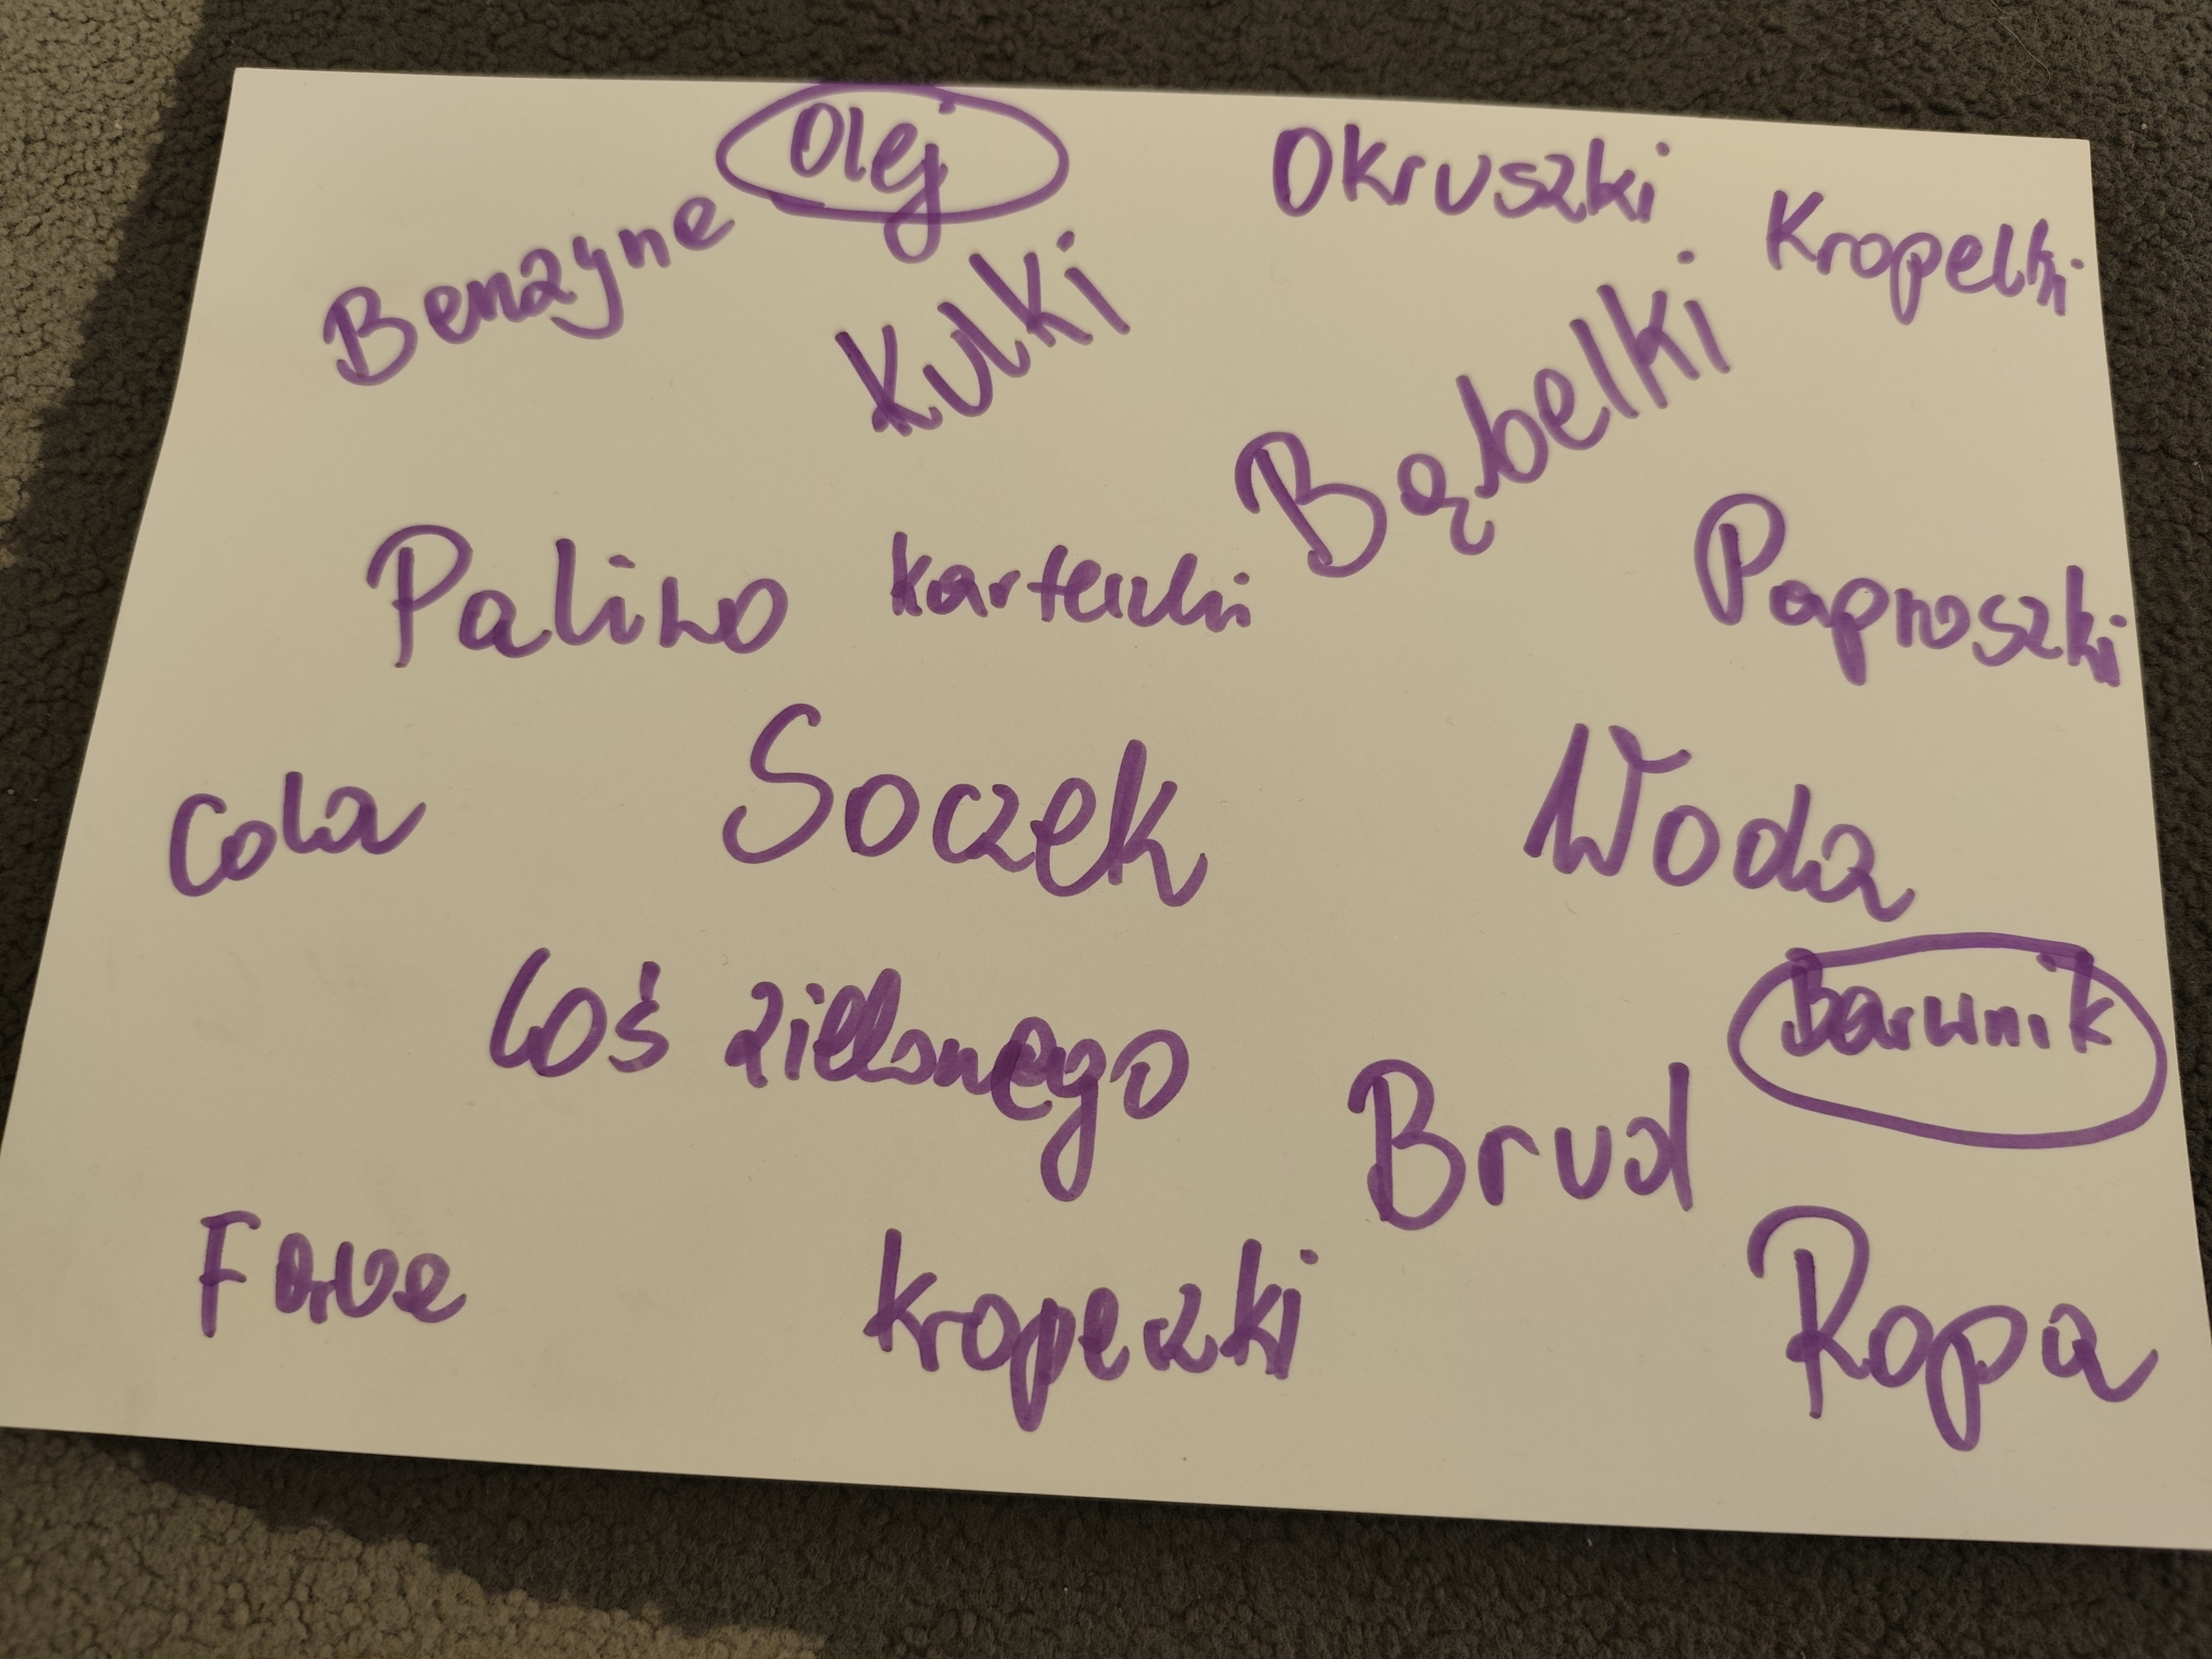 Olej
Okruszki
Benzyne
Kropelki
Kulki
Bąbelki
Paliwo
Paproszki
Cola
Soczek
Woda
Coś zielonego
Barwnik
Brud
kropeczki
Ropa